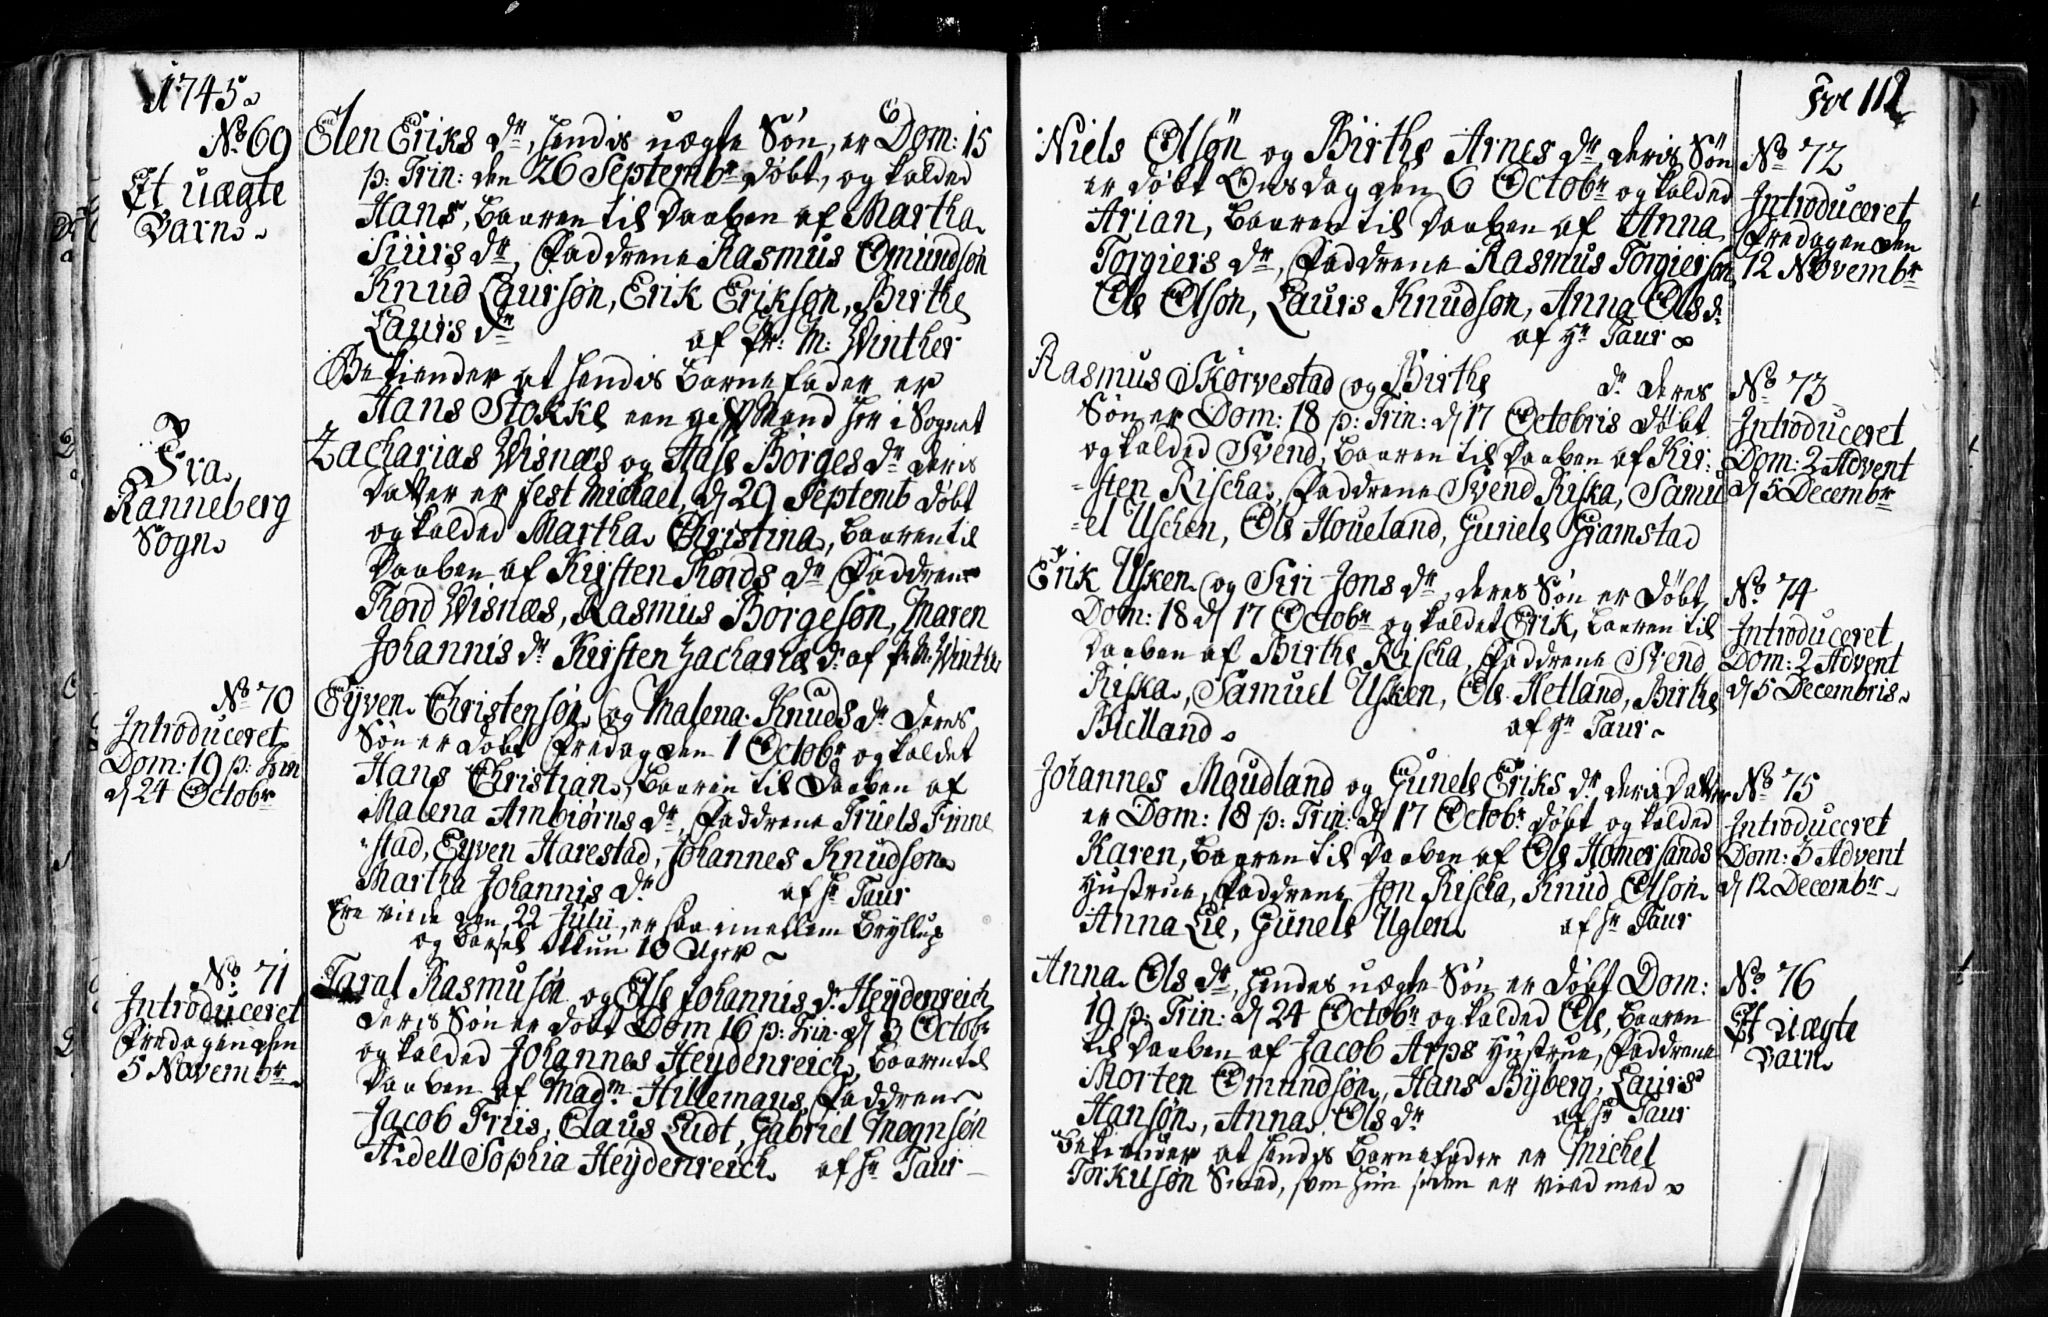 1745
No. 69
Et uægte
Barn
Elen Eriks dr, hendis uægte Søn, er Dom: 15
p: Trin: den 26 Septembr døbt, og kalded
Hans, baaren til Daaben af Martha
Siurs dr, Faddrene Rasmus Omundsøn
Knud Laursøn, Erik Eriksøn, Birthe
Laurs dr af Pr: M: Winther
Bekiender at hendis Barnefader er
Hans Stokke een gift Mand her i Sognet
Fra
Ranneberg
Sogn
Zacharias Wisnæs og Aase Børges dr deris
Datter er Fest Michael, d 29 Septemb døbt
og kalded Martha Christina, baaren til
Daaben af Kirsten Tords dr Faddrene
Tord Wisnæs, Rasmus Børgesøn, Maren
Johannis dr Kirsten Zachariæ d: af Pr: M: Winther
No. 70
Introduceret
Dom: 19 p: Trin
d 24 Octobr
Eyven Christensøn og Malena Knuds dr deres
Søn er døbt Fredag den 1 Octobr og kaldet
Hans Christian, baaren til Daaben af
Malena Ambiørns dr, Faddrene Truels Finne
stad, Eyven Harestad, Johannes Knudsøn
Martha Johannis dr af Hr Taur
Ere viede den 22 Julii, er saa imellem Bryllup
og Barsel ikkun 10 Uger
No. 71
Introduceret
Fredagen den
5 Novembr
Taral Rasmusøn og Else Johannis dr Heydenreich
deris Søn er døbt Dom 16 p: Trin: d 3 Octobr
og kalded Johannes Heydenreich, baaren til
Daaben af Madm Hillemans, Faddrene
Jacob Friis, Claus Ludt, Gabriel Mognsøn
Aidell Sophia Heydenreich af Hr Taur
Fol 112
Niels Olsøn og Birthe Arnes dr deris Søn
er døbt Onsdag den 6 Octobr og kalded
Arian, baaren til Daaben af Anna
Torgiers dr, Faddrene Rasmus Torgiersøn
Ole Olsøn, Laurs Knudsøn, Anna Ols d:
af Hr Taur
No. 72
Introduceret
Fredagen den
12 Novembr
Rasmus Skørvestad og Birthe dr deres
Søn er Dom: 18 p: Trin: d 17 Octobris døbt
og kalded Svend, baaren til Daaben af Kir:
sten Rischa, Faddrene Svend Riska, Samu
el Uschen, Ole Houeland, Gunele Gramstad
No. 73
Introduceret
Dom: 2 Advent
d 5 Decembr
Erik Usken og Siri Jons dr, deres Søn er døbt
Dom: 18 d 17 Octobr og kaldet Erik, baaren til
Daaben af Birthe Rischa, Faddrene Svend
Riska, Samuel Usken, Ole Hetland, Birthe
Bielland af Hr Taur
No. 74
Introduceret
Dom: 2 Advent
d 5 Decembris
Johannes Moudland og Gunele Eriks dr deris Datter
er Dom: 18 p: Trin: d 17 Octobr døbt og kalded
Karen, baaren til Daaben af Ole Homersands
Hustrue, Faddrene Jon Rischa, Knud Olsøn
Anna Lie, Gunele Uglen af Hr Taur
No. 75
Introduceret
Dom: 3 Advent
d 12 Decembr
Anna Ols dr, hendes uægte Søn er døbt Dom:
19 p: Trin: d 24 Octobr og kalded Ole, baaren
til Daaben af Jacob Arps Hustrue, Faddrene
Morten Omundsøn, Hans Byberg, Laurs
Hansøn, Anna Ols dr af Hr Taur
Bekiender at hendis Barnefader er Michel
Torkilsøn Smed, som hun siden er vied med
No. 76
Et Uægte
Barn